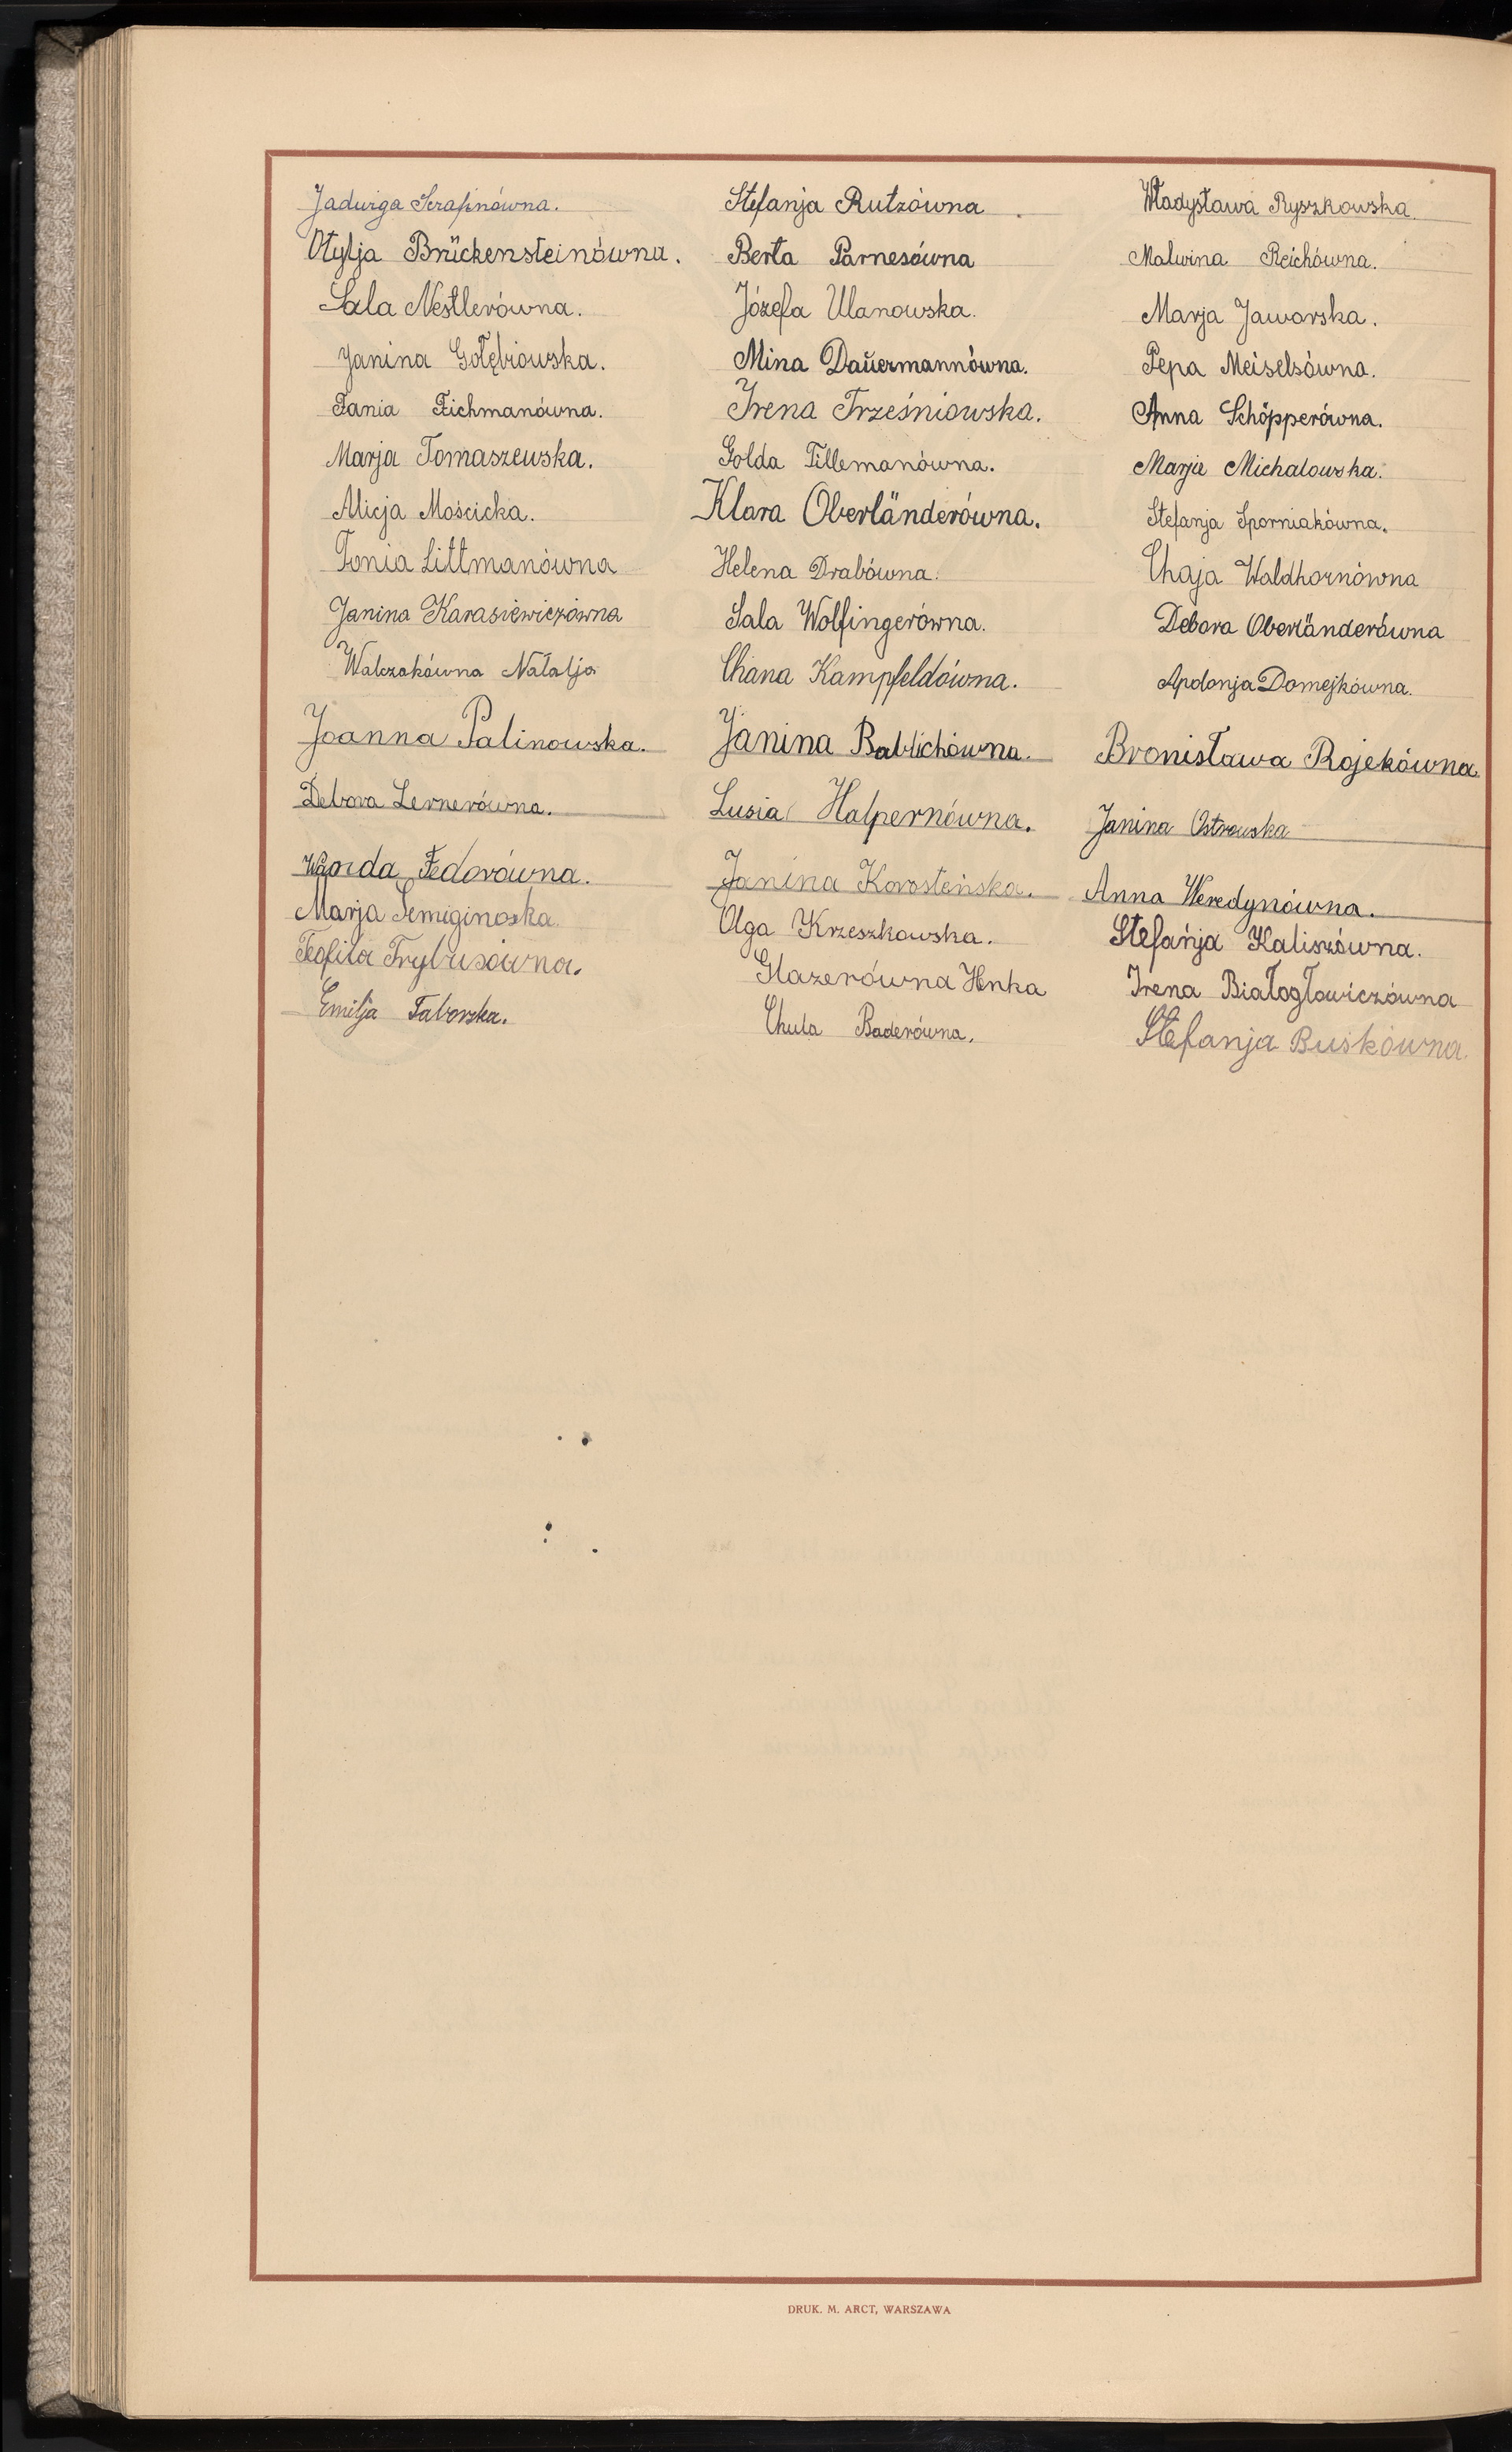 Jadwiga Serafinówna.
Otylja Brückensteinówna.
Sala Nestlerówna.
Janina Gołębiowska.
Fania Fichmanówna.
Marja Tomaszewska.
Alicja Mościcka.
Tonia Littmanówna
Janina Karasiewiczówna
Walczakówna Natalja
Joanna Palinowska.
Debora Lernerówna.
Wanda Fedorówna.
Marja Semiginoska.
Teofila Trybusówna.
Emilja Taborska.
Stefanja Rutzówna
Berta Parnesówna
Józefa Ulanowska.
Mina Daŭermannówna.
Irena Trześniowska.
Golda Tillemanówna.
Klara Oberländerówna.
Helena Drabówna.
Sala Wolfingerówna.
Chana Kampfeldówna.
Janina Bablichówna.
Lusia Halpernówna.
Janina Korosteńska.
Olga Krzeszkowska.
Glazerówna Henka
Chula Baderówna.
Władysława Ryszkowska.
Malwina Reichówna.
Marja Jaworska.
Pepa Meiselsówna.
Anna Schöpperówna.
Marja Michalowska.
Stefanja Sporniakówna.
Chaja Waldhornówna
Debora Oberländerówna
Apolonja Domejkówna.
Bronisława Rojekówna.
Janina Ostrowska
Anna Weredynówna.
Stefańja Kaliszówna.
Irena Białogłowiczówna
Stefanja Buskówna.
DRUK. M. ARCT, WARSZAWA